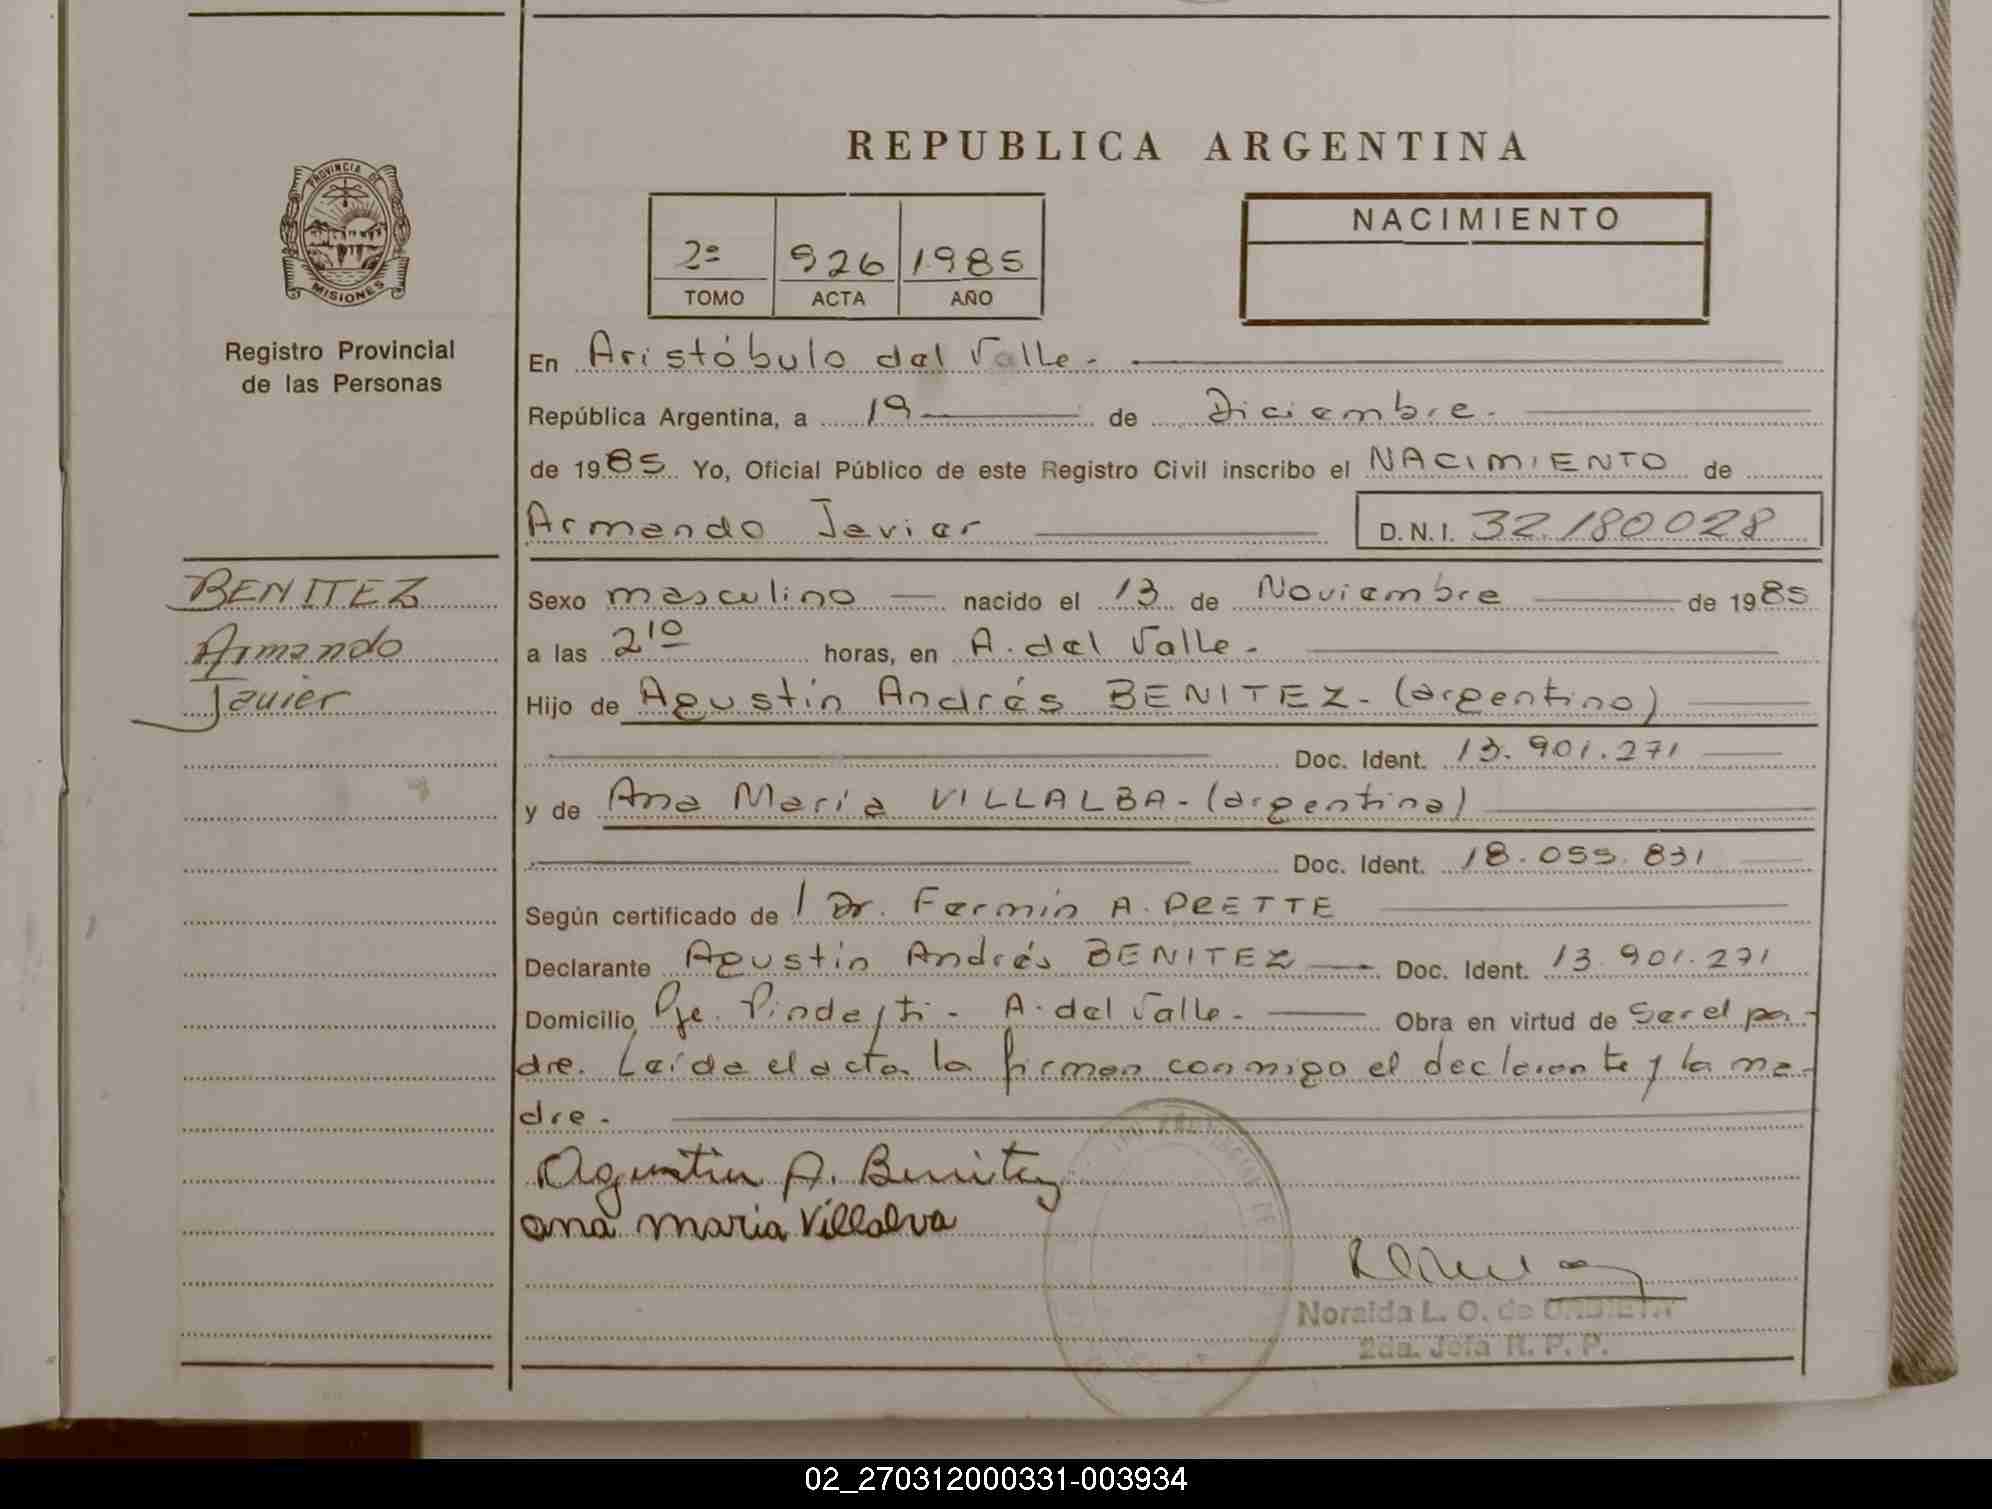 REPUBLICA ARGENTINA
PROVINCIA DE
MISIONES
Registro Provincial
de las Personas
2º 926 1985
TOMO ACTA AÑO
NACIMIENTO
En Aristóbulo del Valle.-
República Argentina, a 19 de Diciembre.-
de 1985 Yo, Oficial Público de este Registro Civil inscribo el NACIMIENTO de
Armando Javier D.N.I. 32.180028
BENITEZ
Armando
Javier
Sexo masculino nacido el 13 de Noviembre de 1985
a las 2 10 horas, en A. del Valle.-
Hijo de Agustín Andrés BENITEZ.- (argentino)
Doc. Ident. 13.901.271
y de Ana María VILLALBA.- (argentina)
Doc. Ident. 18.055.831
Según certificado de Dr. Fermín A. PRETTE
Declarante Agustín Andrés BENITEZ Doc. Ident. 13.901.271
Domicilio Pje. A. del Valle.- Obra en virtud de ser el pa-
dre. Leída el acta la firman conmigo el declarante y la ma-
dre.-
Agustin A. Benitez
ana maria Villalva
Noraida L. O. de URBIETA
2da. Jefa R. P. P.
02_270312000331-003934